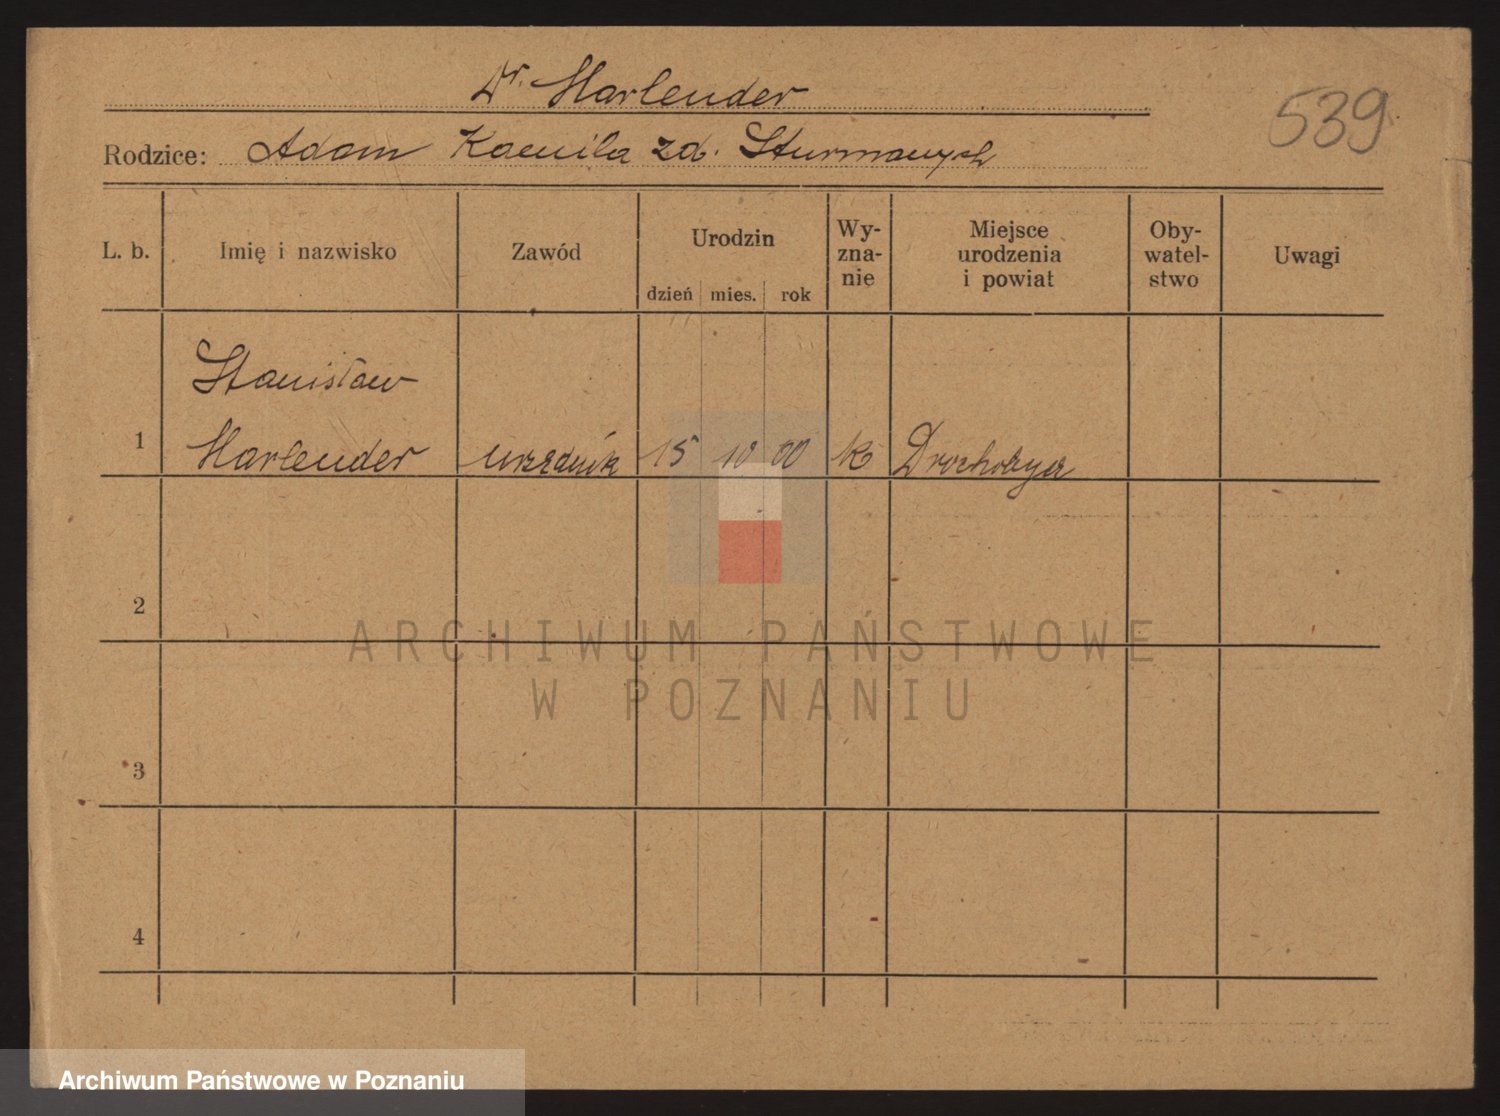 Dr. Harlender
539
Rodzice: Adam Kamila zd. Sturmanych
L. b. Imię i nazwisko Zawód Urodzin Wy-zna-nie Miejsce urodzenia i powiat Oby-watel-stwo Uwagi
dzień mies. rok
Stanisław
1 Harlender urzędnik 15 10 00 rk Drohobycz
2
ARCHIWUM PAŃSTWOWE
W POZNANIU
3
4
Archiwum Państwowe w Poznaniu